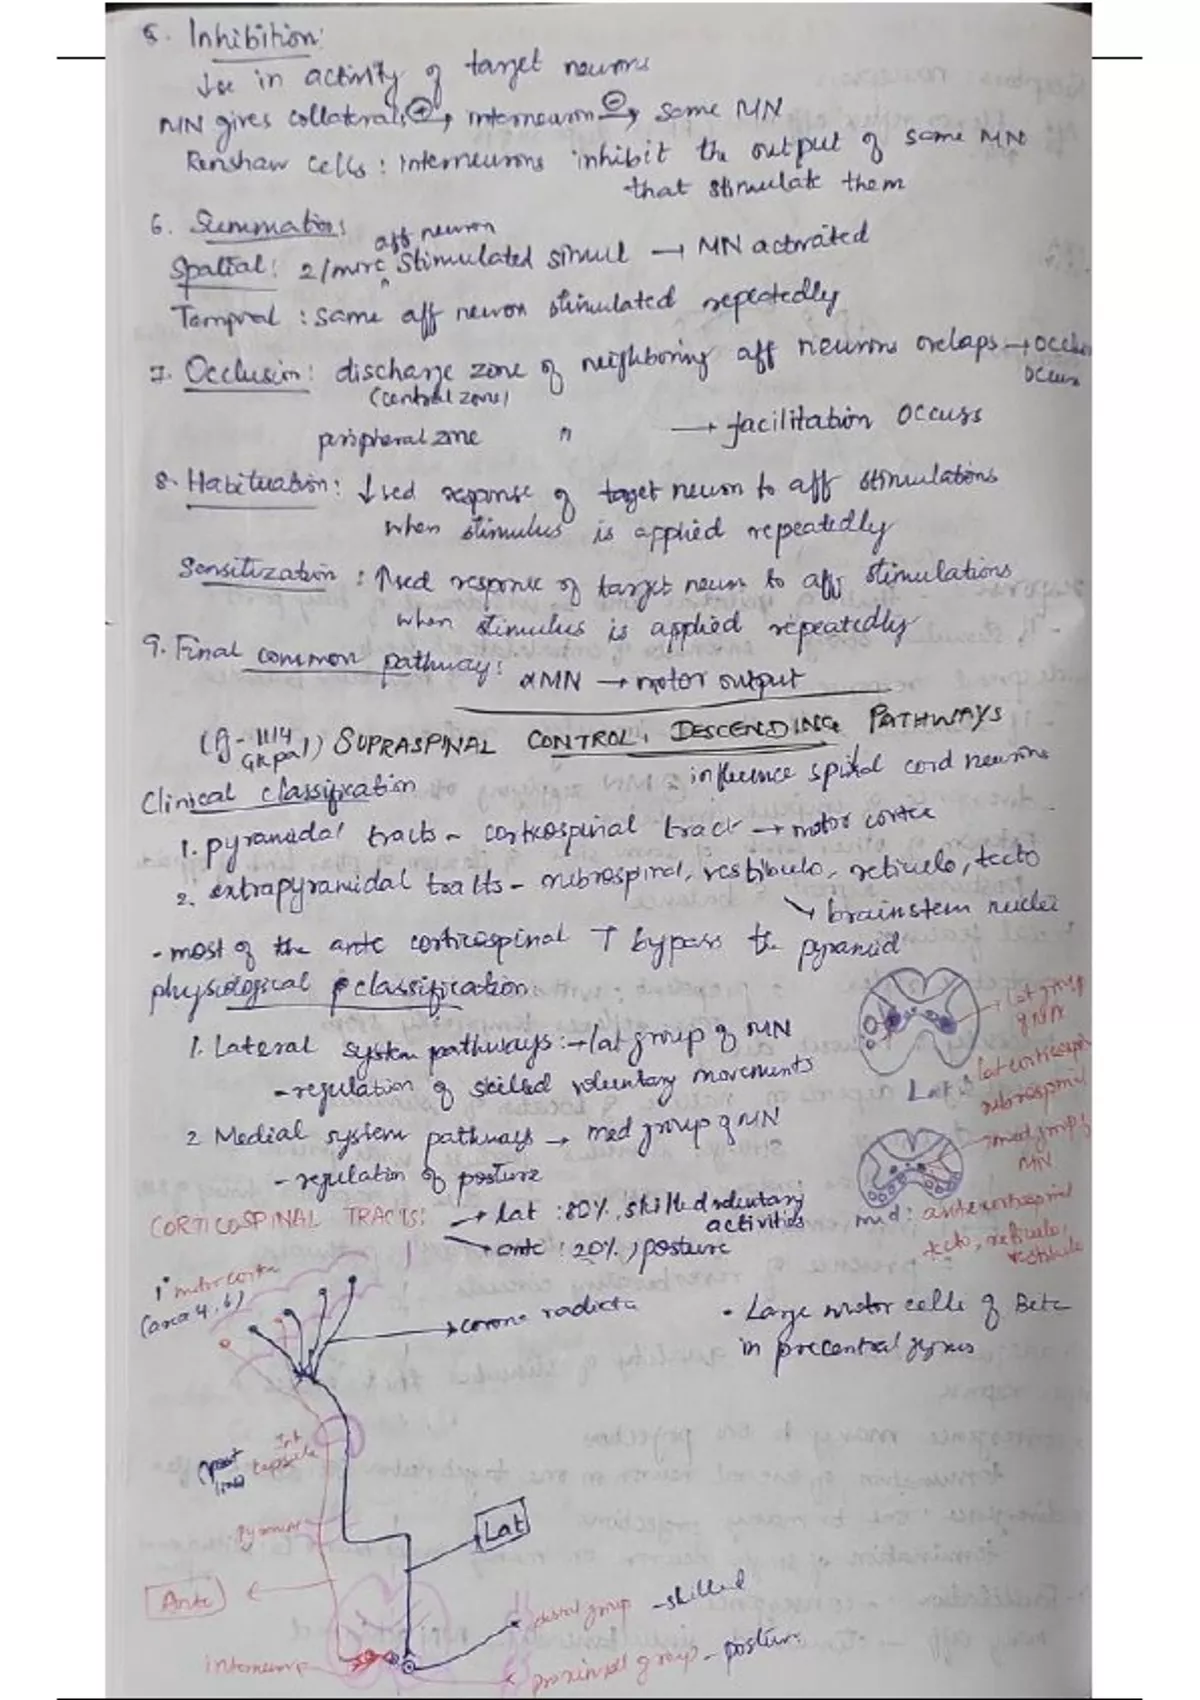 5. Inhibition:
↓se in activity of target neurons
MN gives collaterals ⊕→ interneuron ⊖→ same MN
Renshaw cells : interneurons inhibit the output of same MN
that stimulate them
6. Summation:
aff neuron
Spatial: 2/more ^ stimulated simul → MN activated
Temporal : same aff neuron stimulated repeatedly
7. Occlusion: discharge zone of neighboring aff neurons ovelaps →
(central zone) occurs
peripheral zone " → facilitation occurs
8. Habituation: ↓sed response of target neuron to aff stimulations
when stimulus is applied repeatedly
Sensitization : ↑sed response of target neuron to aff stimulations
when stimulus is applied repeatedly
9. Final common pathway:
αMN → motor output
SUPRASPINAL CONTROL, DESCENDING PATHWAYS
Clinical classification influence spinal cord neurons
1. pyramidal tracts - corticospinal tract → motor cortex
2. extrapyramidal tracts - rubrospinal, vestibulo, reticulo, tecto
↘ brainstem nuclei
- most of the ante corticospinal T bypass the pyramid
physiological classification
lat group of MN
1. Lateral system pathways: → lat group of MN
- regulation of skilled voluntary movements
Lat : lat corticospin
rubrospinal
2 Medial system pathways → med group of MN
med group of MN
- regulation of posture
CORTICOSPINAL TRACTS: → lat : 80%, skilled voluntary
activities
med : ante corticospinal
tecto, reticulo,
vestibulo
→ ante : 20%, posture
1° motor cortex
(area 4, 6)
corona radiata
• Large motor cells of Betz
in precentral gyrus
Int
capsule
(post
limb)
pyramid
Lat
Ante
distal group - skilled
interneurons
proximal group - posture